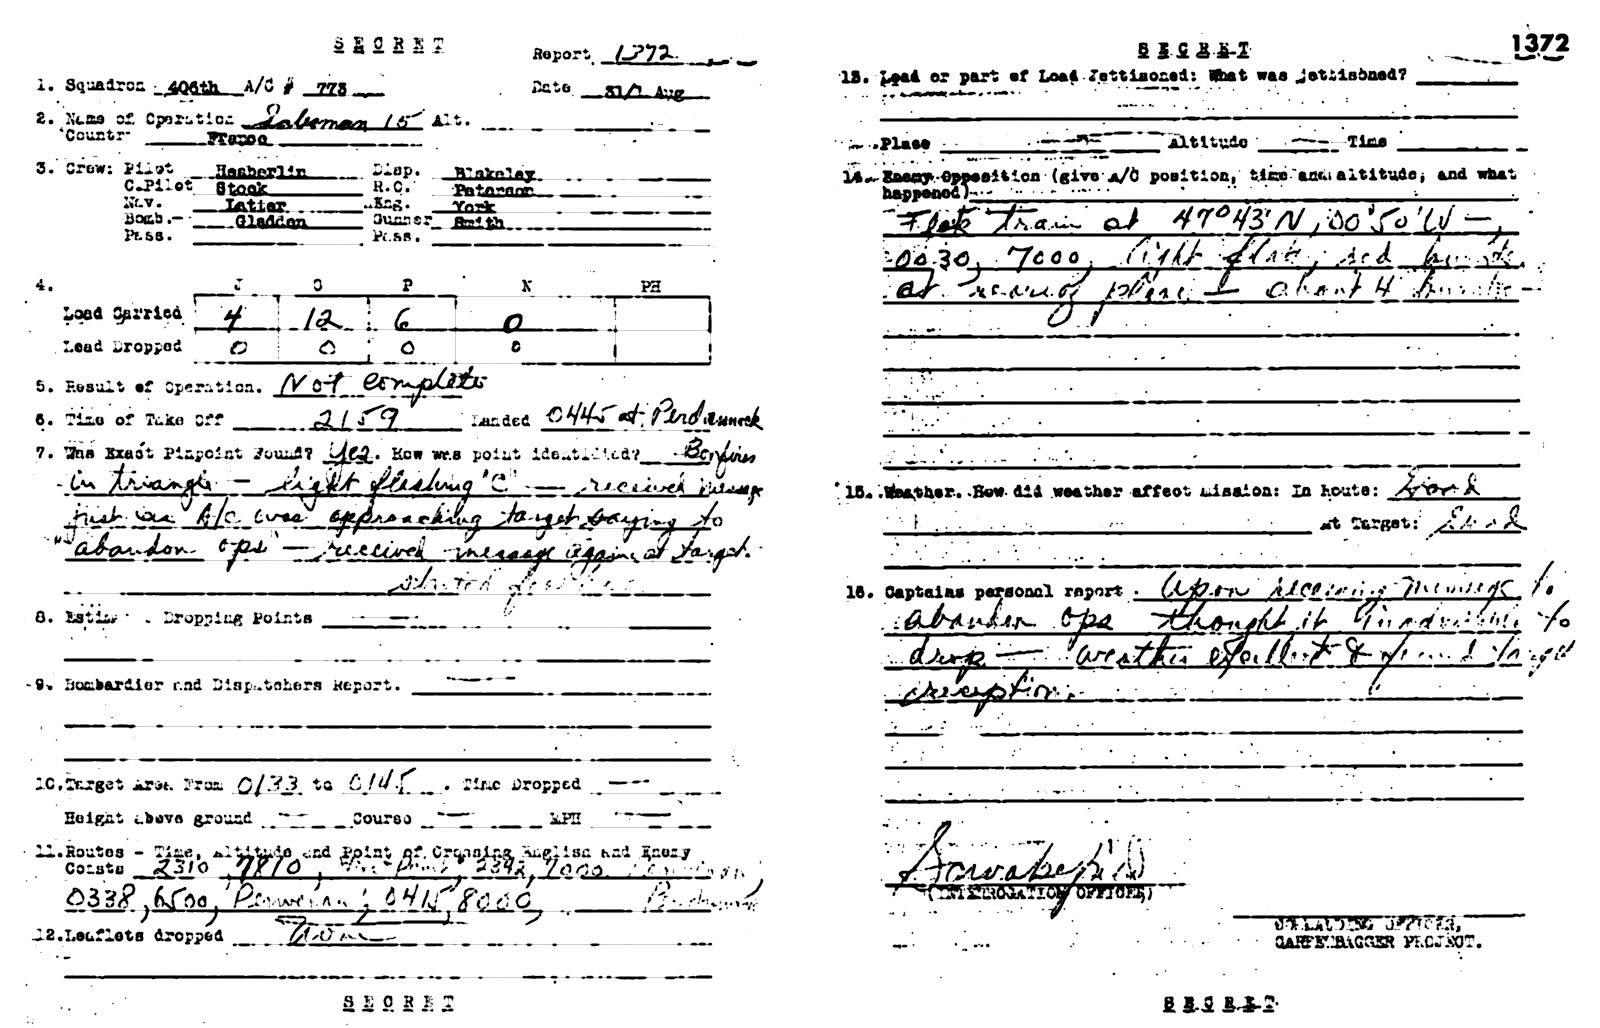 SECRET
Report 1372
1. Squadron 406th A/C # 773
Date 31/1 Aug
2. Name of Operation 15 Alt.
Country France
3. Crew: Pilot Heaberlin Disp. Blakeley
C.Pilot Stock R.O. Peterson
Nav. Latter Eng. York
Bomb. Gladden Gunner Smith
Pass. Pass.
4. J O P N PH
Load Carried 4 12 6 0
Load Dropped 0 0 0 0
5. Result of Operation. Not complete
6. Time of Take Off 2159 Landed 0445 at
7. Was Exact Pinpoint Found? Yes. How was point identified? Bonfires
in triangle — light flashing "C" — received message
just as A/C was approaching target saying to
"abandon ops" — received message again at target.
8. Dropping Points —
9. Bombardier and Dispatchers Report. —
10. Target Area From 0133 to 0145. Time Dropped —
Height above ground — Course — MPH —
11. Routes - Time, Altitude and Point of Crossing English and Enemy
Coasts 2310, 7810, 2342, 7000
0338, 6500, 0415, 8000,
12. Leaflets dropped None
SECRET
SECRET
1372
13. Load or part of Load Jettisoned: What was jettisoned?
Place Altitude — Time
14. Enemy Opposition (give A/C position, time and altitude, and what
happened)
Flak train at 47°43'N, 00°50'W —,
0030, 7000, light flak, red bursts
at rear of plane — about 4 bursts —
15. Weather. How did weather affect Mission: In Route: Good
At Target: Good
16. Captains personal report. Upon receiving message to
abandon ops thought it inadvisable to
drop — weather excellent & found target
reception.
(INTERROGATION OFFICER)
COMMANDING OFFICER,
CARPETBAGGER PROJECT.
SECRET